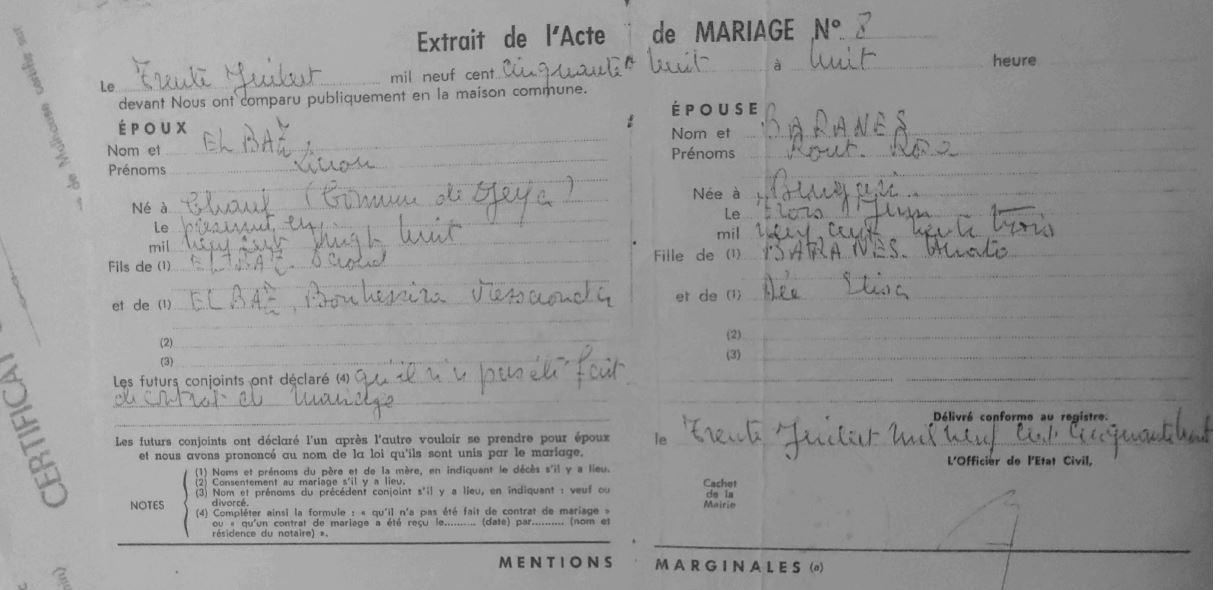 Extrait de l'Acte de MARIAGE N° 8
Le Trente Juillet mil neuf cent cinquante huit à huit heure
devant Nous ont comparu publiquement en la maison commune.
ÉPOUX
Nom et ELBAZ
Prénoms
Né à (Commune de
Le présumé en
mil neuf cent vingt huit
Fils de (1) ELBAZ
et de (1) ELBAZ,
(2)
(3)
Les futurs conjoints ont déclaré (4) qu'il n'a pas été fait
de contrat de mariage
Les futurs conjoints ont déclaré l'un après l'autre vouloir se prendre pour époux
et nous avons prononcé au nom de la loi qu'ils sont unis par le mariage.
NOTES
(1) Noms et prénoms du père et de la mère, en indiquant le décès s'il y a lieu.
(2) Consentement au mariage s'il y a lieu.
(3) Nom et prénoms du précédent conjoint s'il y a lieu, en indiquant : veuf ou
divorcé.
(4) Compléter ainsi la formule : « qu'il n'a pas été fait de contrat de mariage »
ou « qu'un contrat de mariage a été reçu le.......... (date) par.......... (nom et
résidence du notaire) ».
ÉPOUSE
Nom et BARANES
Prénoms Rout. Rosa
Née à
Le trois Juin
mil neuf cent trente trois
Fille de (1) BARANES.
et de (1)
(2)
(3)
Délivré conforme au registre.
le Trente Juillet mil neuf cent cinquante huit
L'Officier de l'Etat Civil,
Cachet
de la
Mairie
MENTIONS MARGINALES (a)
CERTIFICAT
de Mulhouse certifie sur